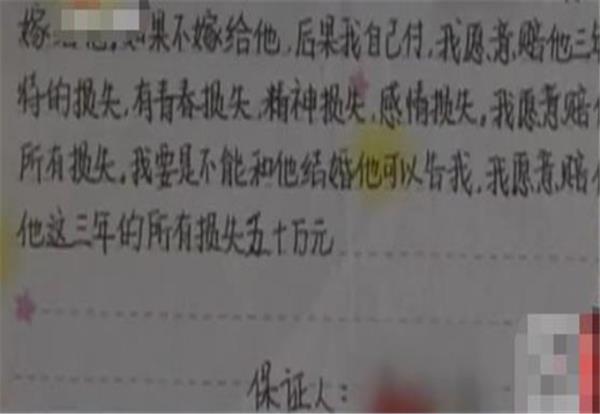 嫁给他,如果不嫁给他,后果我自己付,我愿意赔他三年
特的损失,有青春损失,精神损失,感情损失,我愿意赔他
所有损失,我要是不能和他结婚他可以告我,我愿意赔他
他这三年的所有损失五十万元
保证人: